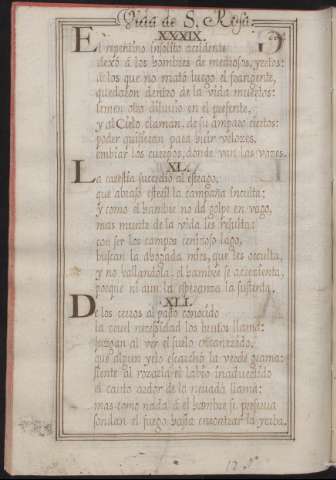 Vida de S. Rosa
XXXIX.
El repentino insolito accidente
dexó á los hombres de medrosos, yertos:
á los que no mató luego el
quedaron dentro de la vida muertos:
temen otro diluvio en el presente,
y al Cielo claman, de su amparo ciertos:
poder quisieran para huir velozes,
embiar los cuerpos, donde van las vozes.
XL.
La carestia sucedio al estrago,
que abraso esteril la campaña inculta:
y como el hambre no dá golpe en vago,
mas muerte de la vida les resulta:
con ser los campos lago,
buscan la abogada mies, que les oculta,
y no hallandola, el hambre se acrecienta,
porque ni aun la esperanza la sustenta.
XLI.
De los cerros al pasto conocido
la cruel necesidad los brutos llama:
juzgan al ver el suelo encanezido,
que algun yelo escarchó la verde grama:
siente al rozarla el labio inadvertido
el canto ardor de la nevada llama:
mas como nada á el hambre
sondan el fuego hasta encontrar la yerba.